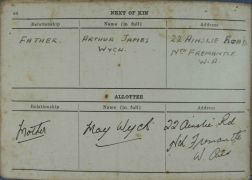 NEXT OF KIN
Relationship Name (in full) Address
FATHER. ARTHUR JAMES 22 AINSLIE ROAD
WYCH. Nth FREMANTLE
W.A.
ALLOTTEE
Relationship Name (in full) Address
Mother May Wych 22 Ainslie Rd
Nth Fremantle
W. Aus